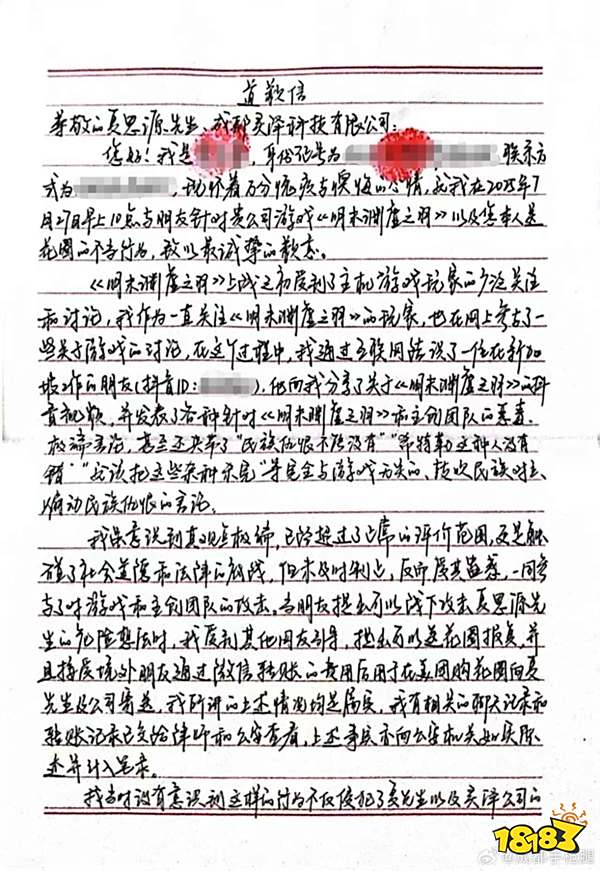 道歉信
尊敬的夏思源先生、成都灵泽科技有限公司:
您好!我是 ,身份证号为 联系方
式为 ,现怀着万分愧疚与懊悔的心情,就我在2025年7
月27日早上10点与朋友针对贵公司游戏《明末渊虚之羽》以及您本人送
花圈的不当行为,致以最诚挚的歉意。
《明末渊虚之羽》上线之初受到了主机游戏玩家的广泛关注
和讨论,我作为一直关注《明末渊虚之羽》的玩家,也在网上参与了一
些关于游戏的讨论,在这个过程中,我通过互联网结识了一位在新加
坡工作的朋友(抖音ID: ),他向我分享了关于《明末渊虚之羽》的
视频,并发表了各种针对《明末渊虚之羽》和主创团队的恶意、
极端言论,甚至还夹带了"民族仇恨 没有""希特勒这种人没有
错""应该把这些 "等完全与游戏无关的、挑唆民族对立、
煽动民族仇恨的言论。
我虽意识到其观点极端,已经超过了正常的评价范围,及是触
碰了社会道德和法律的底线,但未及时制止,反而受其蛊惑,一同参
与了对游戏和主创团队的攻击。当朋友提出可以线下攻击夏思源先
生的危险想法时,我受到其他网友引导,提出可以送花圈报复,并
且接受境外朋友通过微信转账的费用后用于在美团购花圈向夏
先生及公司寄送,我所讲的上述情况均是属实,我有相关的聊天记录和
转账记录已交给律师和公安查看,上述事实亦向公安机关如实陈
述并计入笔录。
我当时没有意识到这样的行为不仅侵犯了夏先生以及灵泽公司的
18183